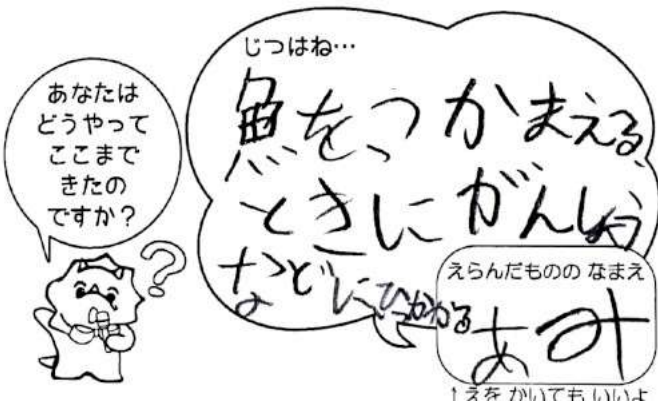 あなたは
どうやって
ここまで
きたの
ですか？
?
じつはね…
魚をつかまえる
ときにがんしょう
などにひっかかる
えらんだものの なまえ
あみ
↑えを かいても いいよ